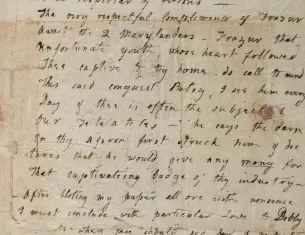 The very respectful compliments of Frazur
await the 2 Marylanders - Frazur that
unfortunate youth whose heart followed
Thee captive to thy home do call to mind
This said conquest Patsy, I see him every
Day of thee is often the subject
our Te ta a tetes - he says the darn
In thy apron first struck him & dec
tares that he would give any mony for
That captivating badge of thy industry
After bloting my papar all ore with nonsence
I must conclude with particular Love to Debby